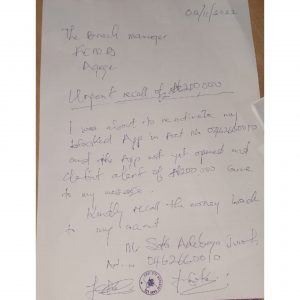 09/11/2022
The Branch manager
FCMB
Agege
Urgent recall of ₦200,000
I was about to reactivate my
blocked App in Acct No 0462660010
and the App not yet opened and
debit alert of ₦200,000 came
to my message.
Kindly recall the money back
to my account
Adebayo
0462660010